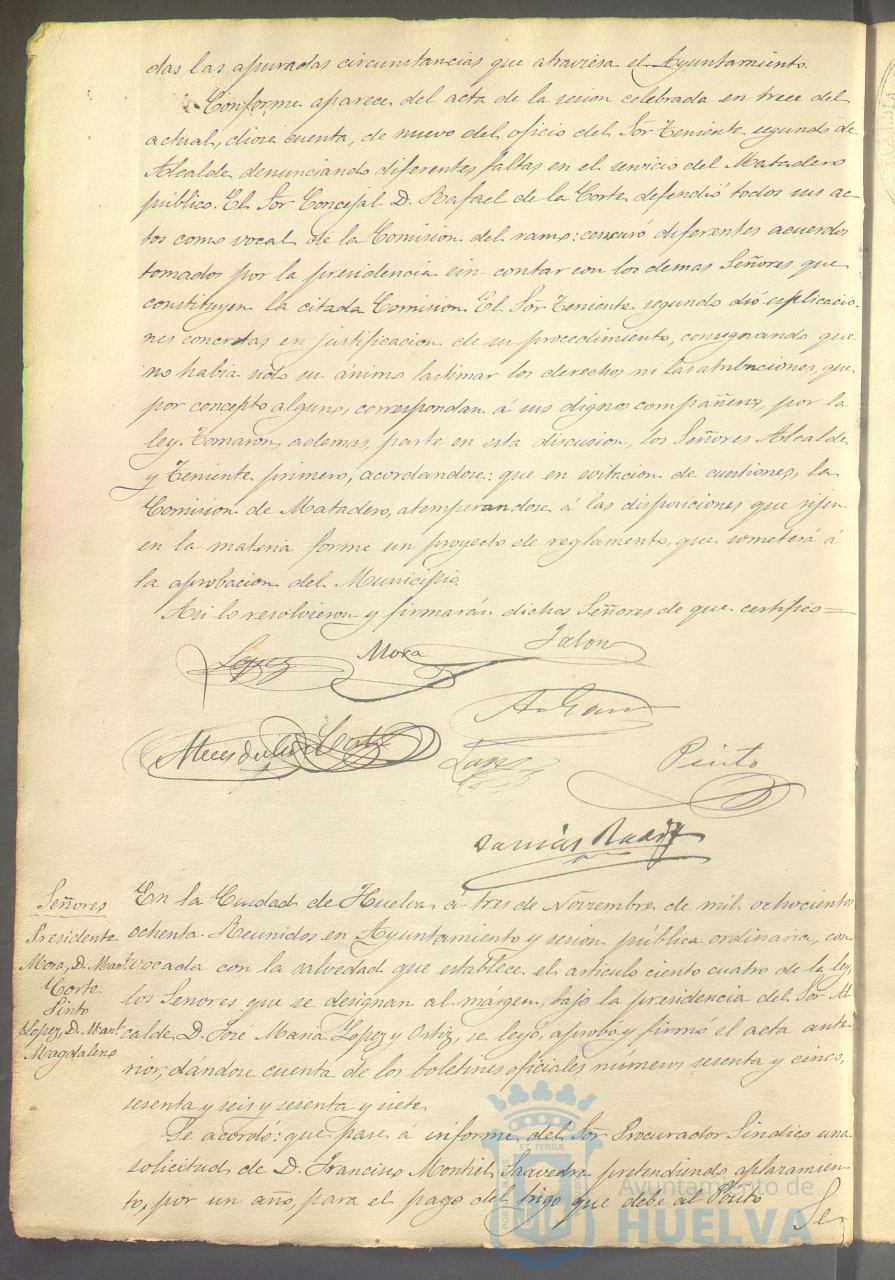 das las apuradas circunstancias que atraviesa el Ayuntamiento.
Conforme aparece del acta de la sesion celebrada en trece del
actual, dióse cuenta, de nuevo del oficio del Sõr Teniente segundo de
Alcalde denunciando diferentes faltas en el servicio del Matadero
público. El Sõr Concejal D. Rafael de la Corte defendió todos sus ac-
tos como vocal de la Comision del ramo: censuró diferentes acuerdos
tomados por la presidencia sin contar con los demas Señores que
constituyen la citada Comision. El Sõr Teniente segundo dió esplicacio-
nes concretas en justificacion de su procedimiento, consignando que
no habia sido su ánimo lastimar los derechos ni las atribuciones, que
por concepto alguno, correspondan á sus dignos compañeros, por la
ley. Tomaron, ademas, parte en esta discusion, los Señores Alcalde
y Teniente primero, acordandose: que en evitacion de cuestiones, la
Comision de Matadero, atemperandose á las disposiciones que rijen
en la materia forme un proyecto de reglamento que someterá á
la aprobacion del Municipio
Asi lo resolvieron y firmarán dichos Señores de que certifico=
Lopez Mora Jalon
A. Garcia
Corte
Lopez Pinto
Señores
Presidente
Mora, D. Manl
Corte
Pinto
Lopez, D. Manl
Magdaleno
En la Ciudad de Huelva á tres de Noviembre de mil ochocientos
ochenta. Reunidos en Ayuntamiento y sesion pública ordinaria, con
vocada con la salvedad que establece el articulo ciento cuatro de la ley,
los Señores que se designan al margen, bajo la presidencia del Sõr Al
calde D. José Maria Lopez y Ortiz, se leyó, aprobó y firmó el acta ante-
rior, dándose cuenta de los boletines oficiales números sesenta y cinco,
sesenta y seis y sesenta y siete.
Se acordó: que pase á informe del Sõr Procurador Síndico una
solicitud de D. Francisco Montiel Saavedra pretendiendo aplazamien-
to, por un año, para el pago del trigo que debe al Pósito
Se
ET TERRÆ
Ayuntamiento de
HUELVA